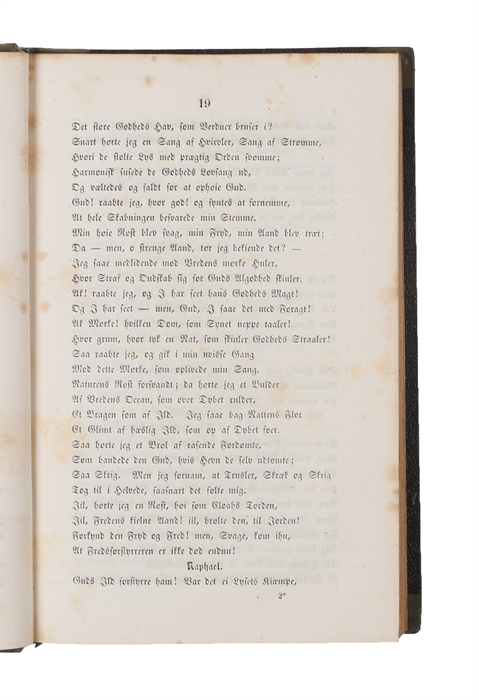 19
Det store Godheds Hav, som Verdner bruser i?
Snart horte jeg en Sang af Hvirvler, Sang af Stromme,
Hvori de stolte Lys med prægtig Orden svomme;
Harmonisk susede de Godheds Lovsang ud,
Og væltedes og faldt for at ophoie Gud.
Gud! raabte jeg, hvor god! og syntes at fornemme,
At hele Skabningen besvarede min Stemme.
Min hoie Rost blev svag, min Fryd, min Aand blev træt;
Da — men, o strenge Aand, tor jeg bekiende det? —
Jeg saae medlidende mod Vredens morke Huler,
Hvor Straf og Ondskab sig for Guds Algodhed skiuler.
Ak! raabte jeg, og J har seet hans Godheds Magt!
Og J har seet — men, Gud, J saae det med Foragt!
Ak Morke! hvilken Dom, som Synet neppe taaler!
Hvor grum, hvor tyk en Nat, som skiuler Godheds Straaler!
Saa raabte jeg, og gik i min uvisse Gang
Mod dette Morke, som oplivede min Sang.
Naturens Rost forsvandt; da horte jeg et Bulder
Af Vredens Ocean, som over Dybet rulder,
Et Bragen som af Ild. Jeg saae bag Nattens Flor
Et Glimt af hæslig Ild, som op af Dybet foer.
Saa horte jeg et Brol af rasende Fordomte,
Som bandede den Gud, hvis Hevn de selv udtomte;
Saa Skrig. Men jeg fornam, at Trusler, Skræk og Skrig
Tog til i Helvede, saasnart det folte mig.
Jil, horte jeg en Rost, hoi som Eloahs Torden,
Jil, Fredens kielne Aand! iil, brolte den, til Jorden!
Forkynd den Fryd og Fred! men, Svage, kom ihu,
At Fredsforstyrreren er ikke dod endnu!
Raphael.
Guds Ild forstyrre ham! Var det ei Lysets Kiæmpe,
2*